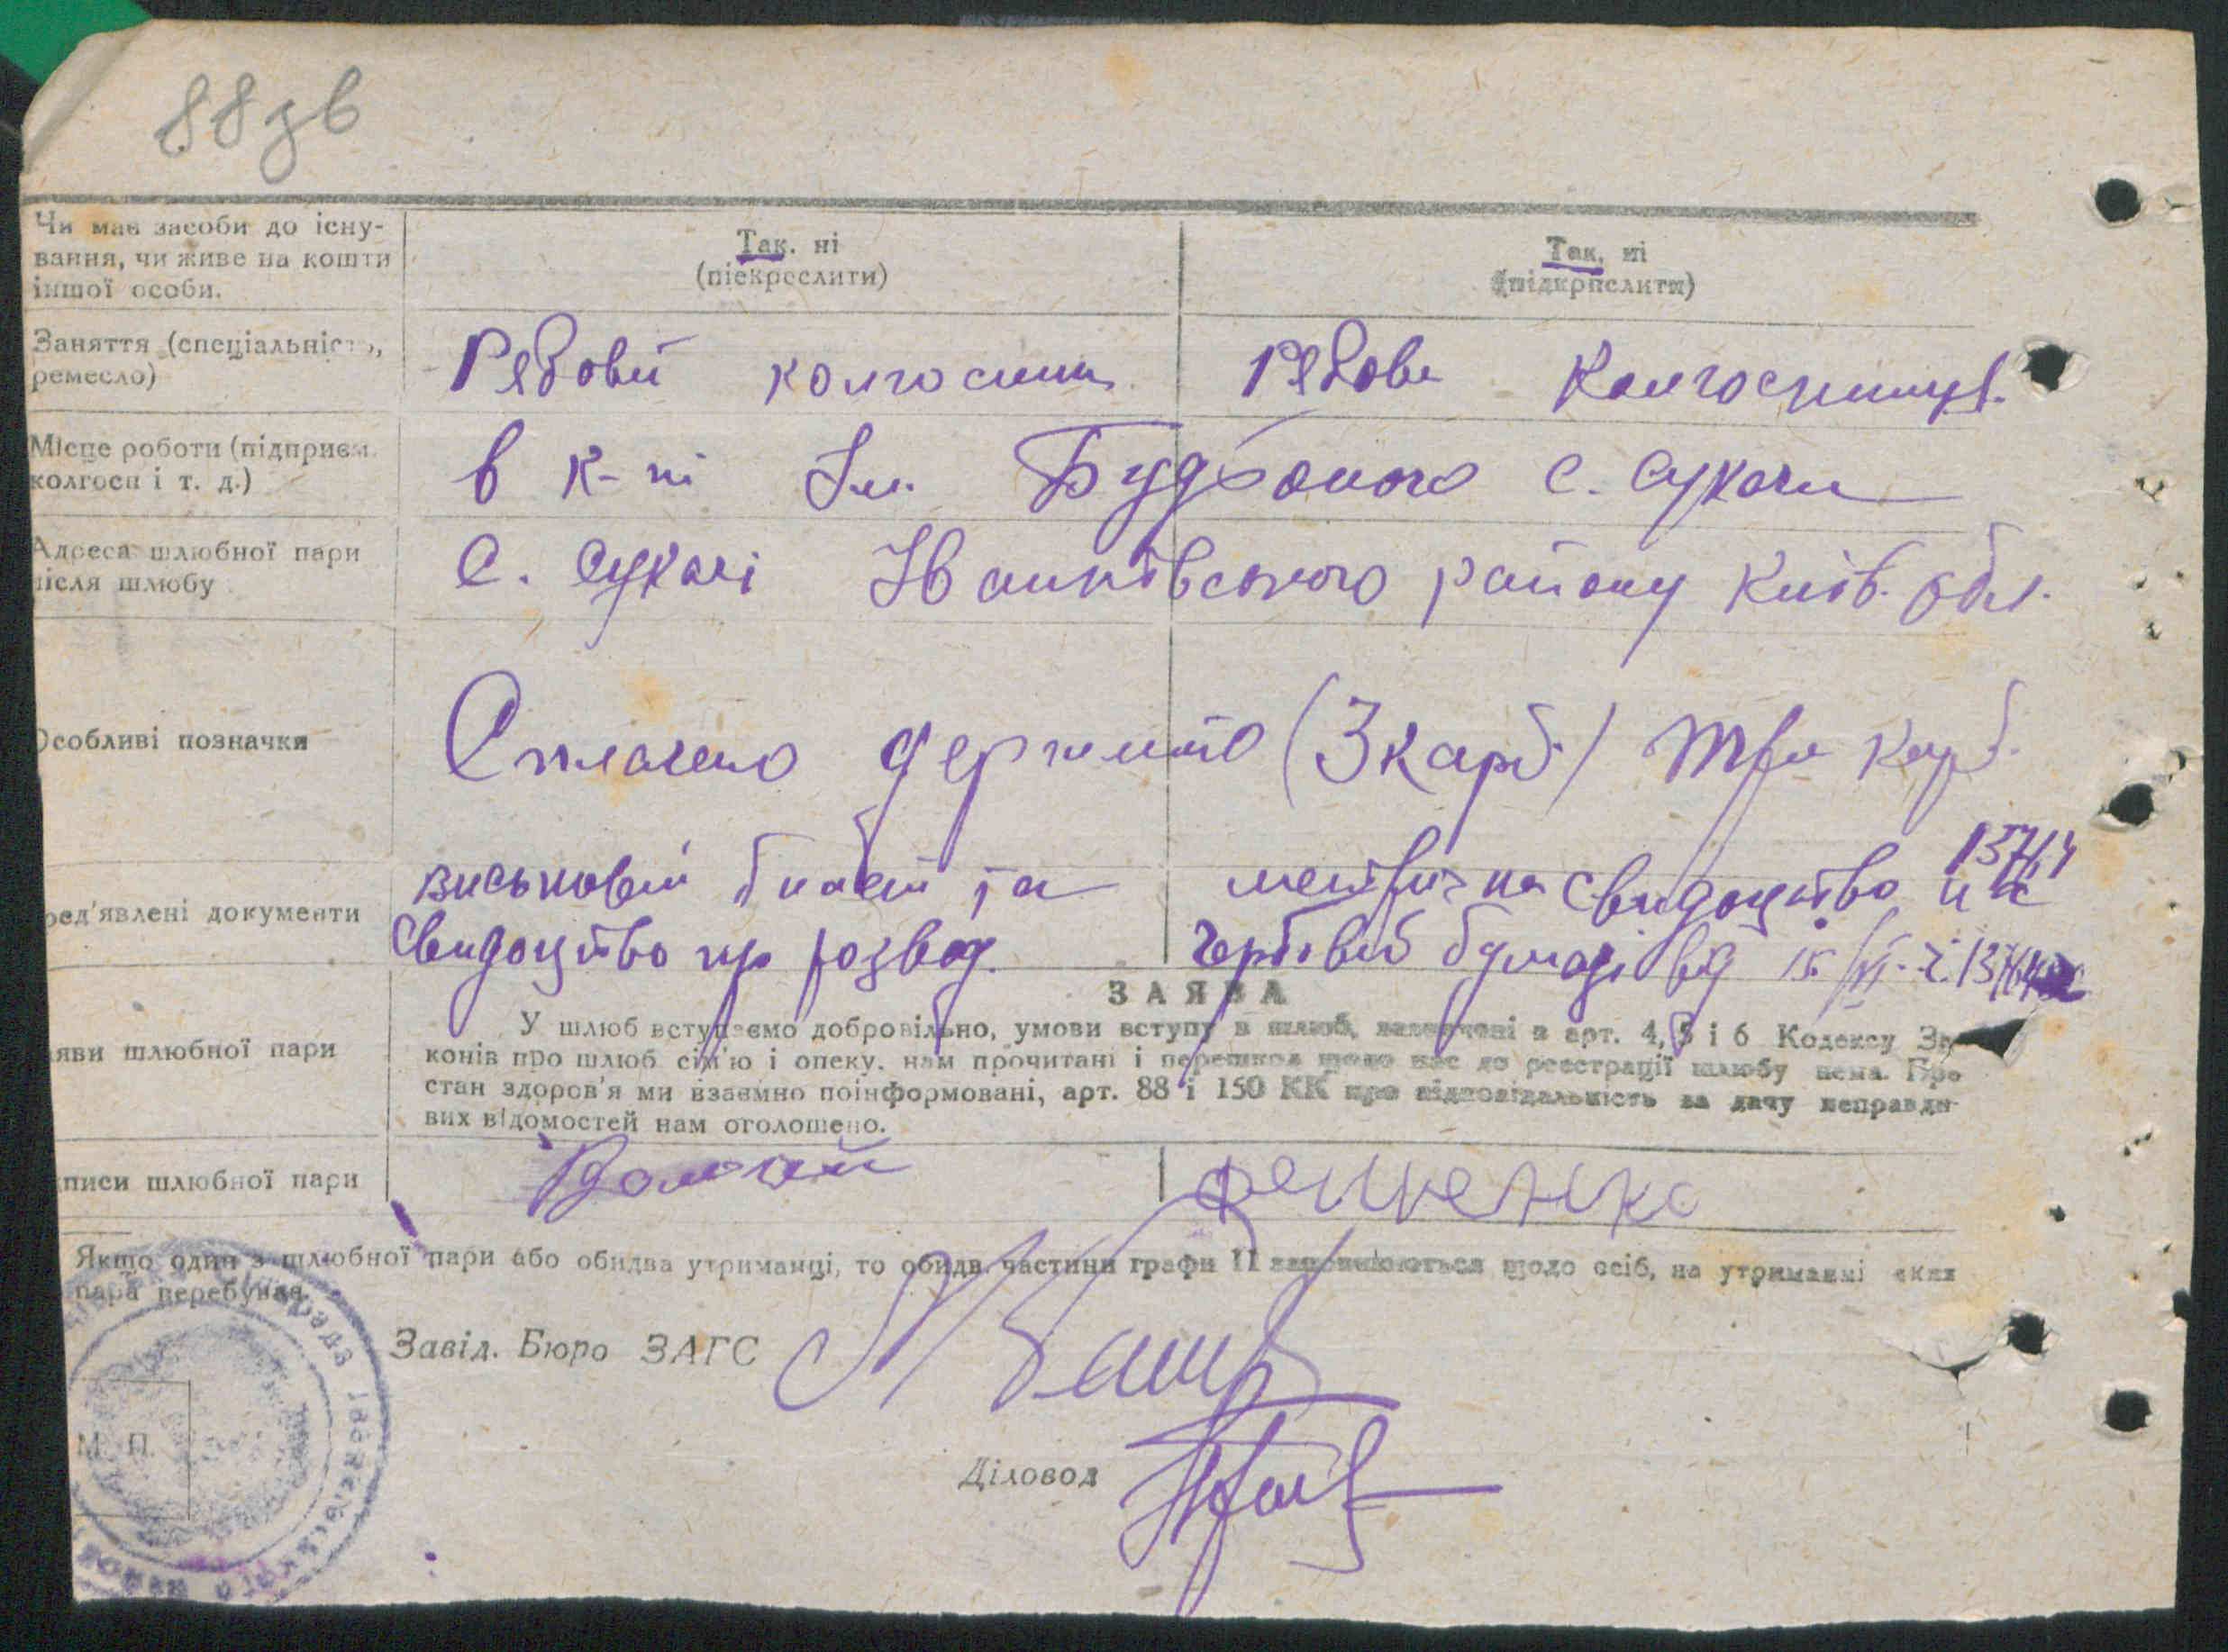 88зв
Чи має засоби до існу-
вання, чи живе на кошти
іншої особи.
Так. ні
(піекреслити)
Так, ні
(підкреслити)
Заняття (спеціальність,
ремесло)
Рядовий колгоспник
Рядова Колгоспниця.
Місце роботи (підприєм.
колгосп і т. д.)
в к-пі Ім. Будьоного с. Сукачи
Адреса шлюбної пари
після шлюбу
С. Сукачі Іванківського району Київ. обл.
Особливі позначки
Сплачено держмито (3 карб.) Три карб.
ред'явлені документи
військовий білет та
Свидоцтво про розвод.
метрична свидоцтво
гербовій бумазі від
яви шлюбної пари
ЗАЯВА
У шлюб вступаємо добровільно, умови вступу в шлюб, зазначені в арт. 4, 5 і 6 Кодексу За-
конів про шлюб сім'ю і опеку. нам прочитані і перешкод щодо нас до реєстрації шлюбу нема. Про
стан здоров'я ми взаємно поінформовані, арт. 88 і 150 КК про відповідальність за дачу неправди-
вих відомостей нам оголошено.
писи шлюбної пари
Якщо один з шлюбної пари або обидва утриманці, то обидві частини графи 11 заповнюються щодо осіб, на утриманні яких
пара перебуває.
Завід. Бюро ЗАГС
М. П.
Діловод